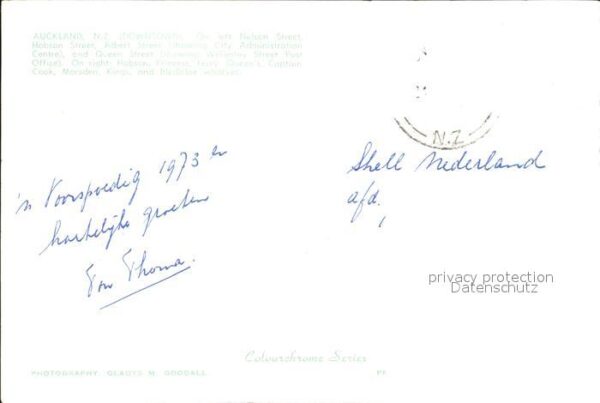 AUCKLAND, N.Z. (DOWNTOWN). On left Nelson Street,
Hobson Street, Albert Street (showing City Administration
Centre), and Queen Street (showing Wellesley Street Post
Office). On right: Hobson, Princess, Ferry, Queen's, Captain
Cook, Marsden, Kings, and Bledisloe wharves.
N.Z
'n Voorspoedig 1973 en
hartelijke groeten
Ton Thoma.
Shell Nederland
afd.,
privacy protection
Datenschutz
Colourchrome Series
PHOTOGRAPHY: GLADYS M. GOODALL